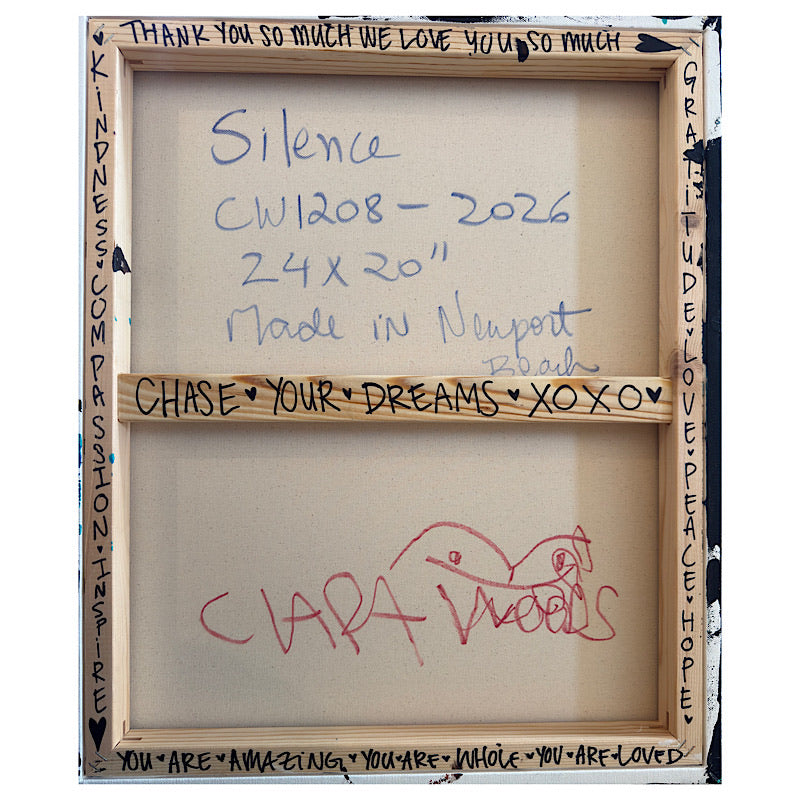 THANK YOU SO MUCH WE LOVE YOU SO MUCH
KINDNESS COMPASSION INSPIRE
GRATITUDE LOVE PEACE HOPE
Silence
CW1208 - 2026
24 x 20"
Made in Newport
Beach
CHASE ♥ YOUR ♥ DREAMS ♥ XOXO ♥
CLARA WOODS
YOU ♥ ARE ♥ AMAZING ♥ YOU ♥ ARE ♥ WHOLE ♥ YOU ♥ ARE ♥ LOVED